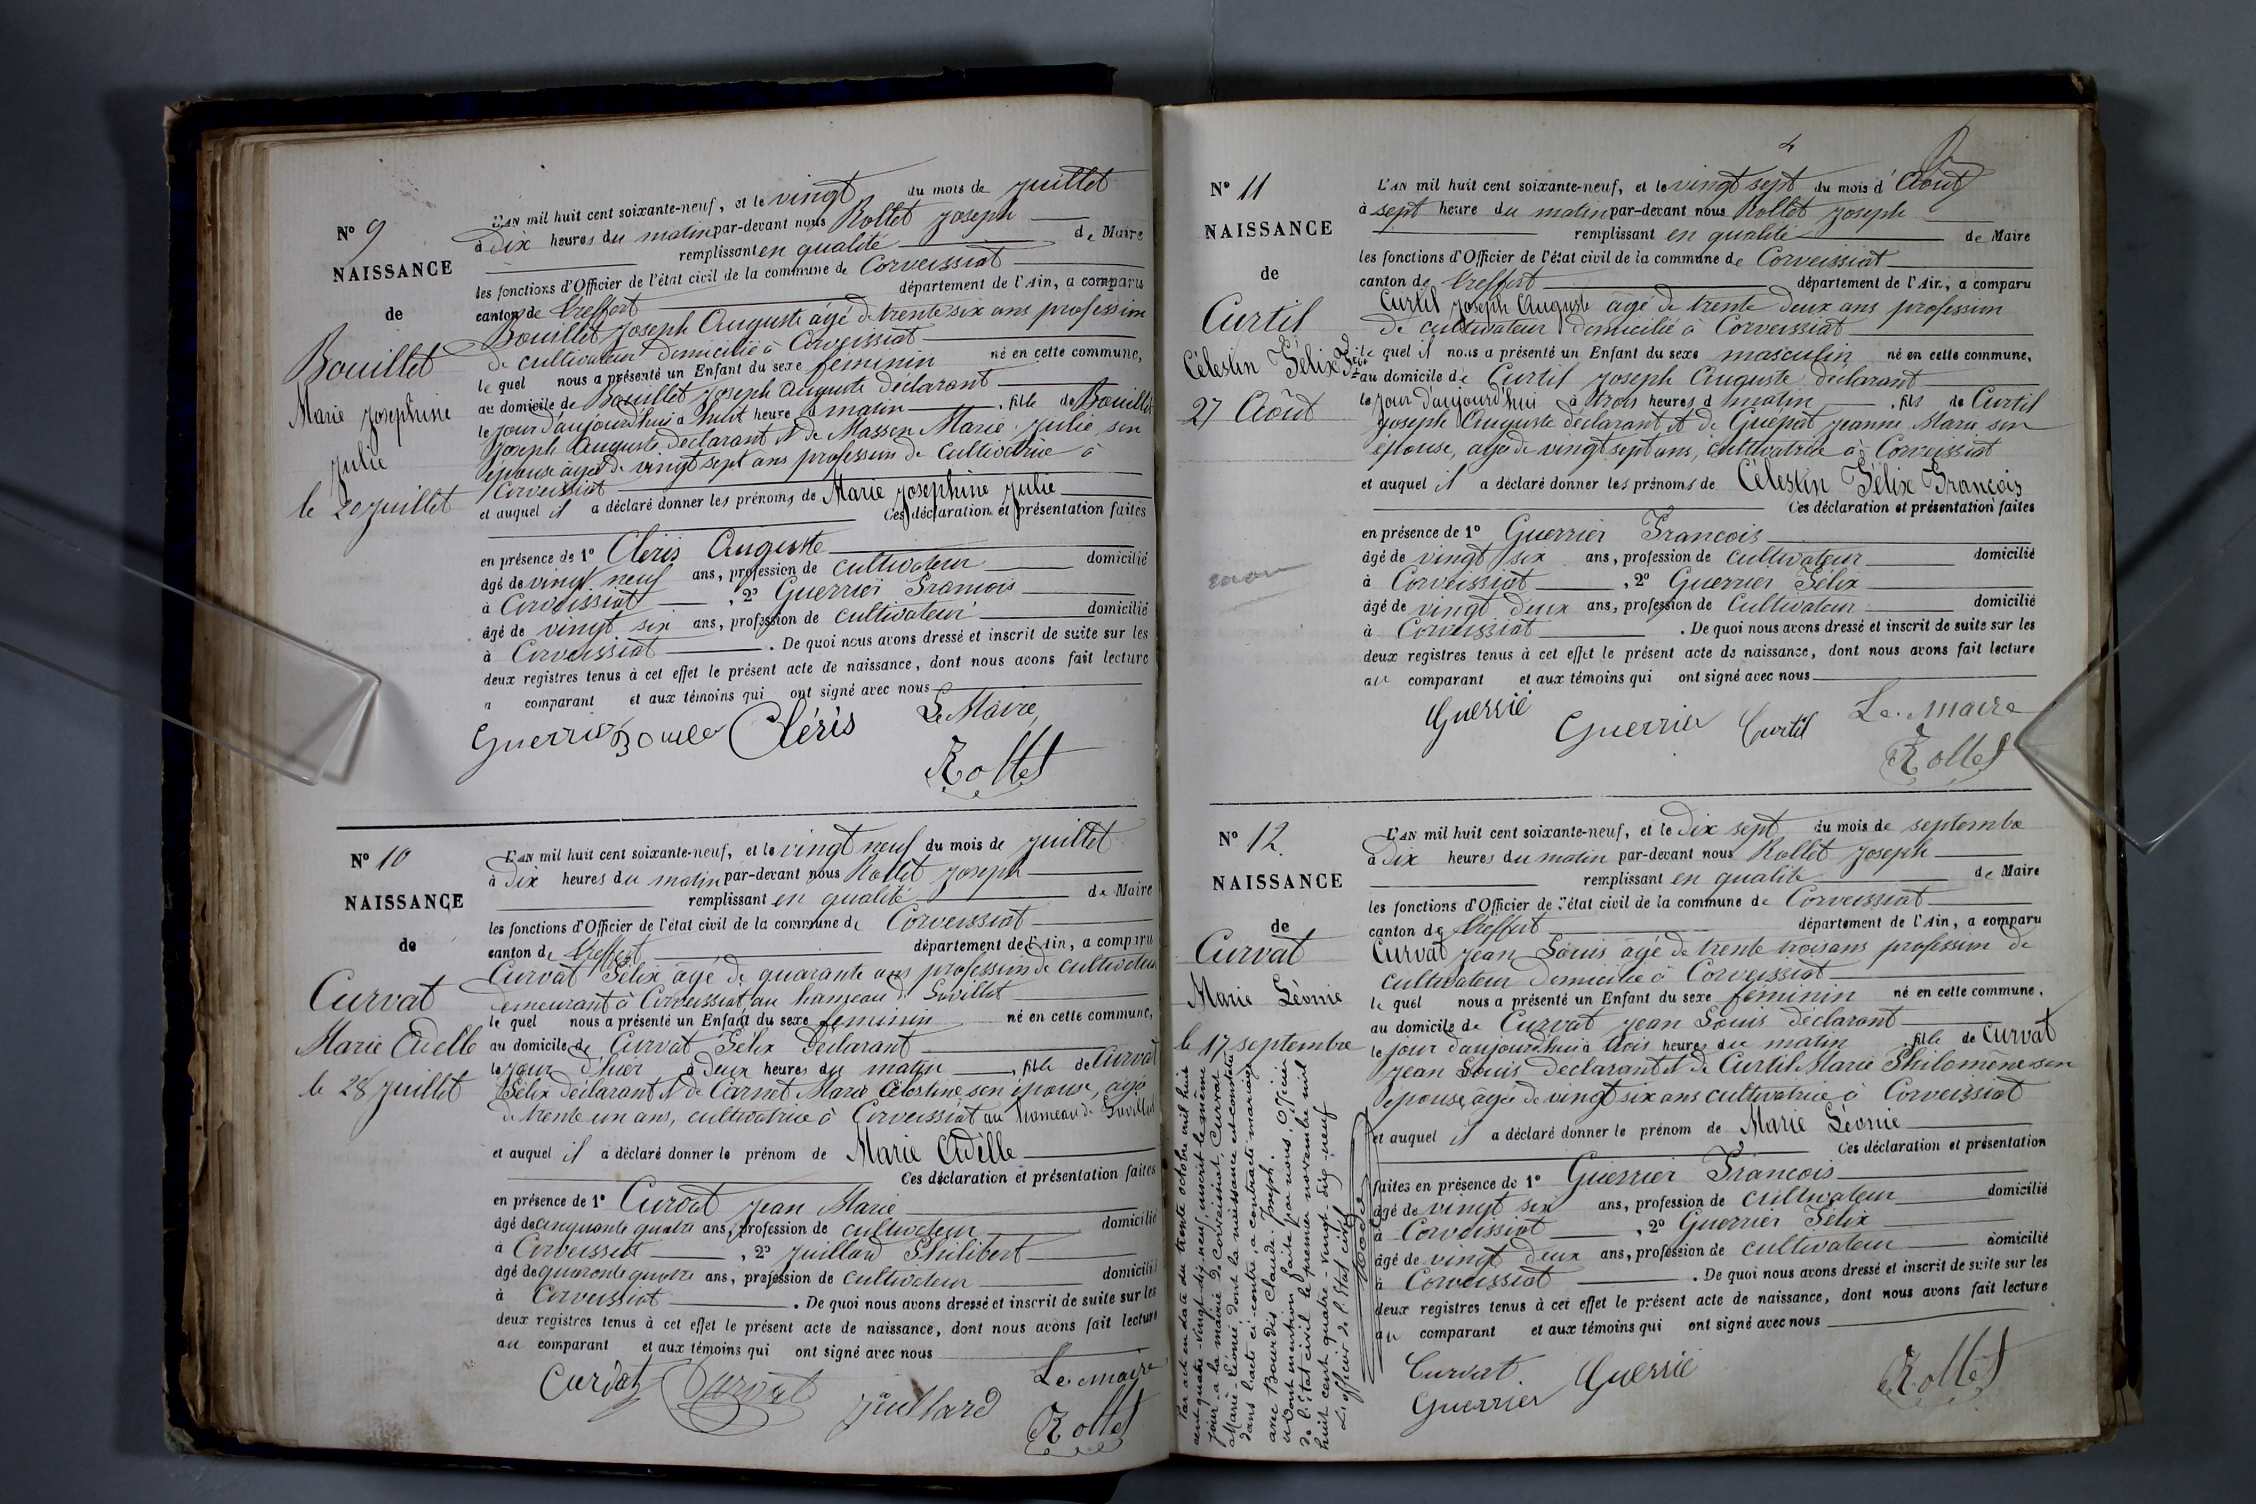 N° 9
NAISSANCE
de
Bouillet
Marie Josephine
Julie
le 20 Juillet
L'AN mil huit cent soixante-neuf, et le vingt du mois de Juillet
à Dix heures du matin par-devant nous Rollet Joseph
remplissant en qualité de Maire
les fonctions d'Officier de l'état civil de la commune de Corveissiat
canton de Treffort département de l'Ain, a comparu
Bouillet Joseph Auguste âgé de trente six ans profession
de cultivateur domicilié à Corveissiat
le quel nous a présenté un Enfant du sexe féminin né en cette commune,
au domicile de Bouillet Joseph Auguste déclarant
le jour d'aujourd'hui à huit heure d matin , fille de Bouillet
Joseph Auguste déclarant et de Masson Marie Julie son
épouse agée de vingt sept ans profession de Cultivatrice à
Corveissiat
et auquel il a déclaré donner les prénoms de Marie Josephine Julie
Ces déclaration et présentation faites
en présence de 1° Cléris Auguste
âgé de vingt neuf ans, profession de cultivateur domicilié
à Corveissiat , 2° Guerrier Francois
âgé de vingt six ans, profession de cultivateur domicilié
à Corveissiat . De quoi nous avons dressé et inscrit de suite sur les
deux registres tenus à cet effet le présent acte de naissance, dont nous avons fait lecture
a comparant et aux témoins qui ont signé avec nous
Guerrier Bouillet Cléris Le Maire
Rollet
N° 10
NAISSANCE
de
Curvat
Marie Adelle
le 28 Juillet
L'AN mil huit cent soixante-neuf, et le vingt neuf du mois de Juillet
à Dix heures du matin par-devant nous Rollet Joseph
remplissant en qualité de Maire
les fonctions d'Officier de l'état civil de la commune de Corveissiat
canton de Treffort département de l'Ain, a comparu
Curvat Félix âgé de quarante ans profession de cultivateur
demeurant à Corveissiat au hameau d
le quel nous a présenté un Enfant du sexe féminin né en cette commune,
au domicile de Curvat Félix Déclarant
le jour d'hier à Deux heures du matin , fille de Curvat
Félix déclarant et de Carnet Marie Celestine son épouse, agée
de trente un ans, cultivatrice à Corveissiat au hameau de
et auquel il a déclaré donner le prénom de Marie Adèlle
Ces déclaration et présentation faites
en présence de 1° Curvat Jean Marie
âgé de cinquante quatre ans, profession de cultivateur domicilié
à Corveissiat , 2° Juillard Philibert
âgé de quarante quatre ans, profession de cultivateur domicilié
à Corveissiat . De quoi nous avons dressé et inscrit de suite sur les
deux registres tenus à cet effet le présent acte de naissance, dont nous avons fait lecture
au comparant et aux témoins qui ont signé avec nous
Curvat Curvat Juillard Le maire
Rollet
4
N° 11
NAISSANCE
de
Curtil
Célestin Félix Fcois
27 Août
L'AN mil huit cent soixante-neuf, et le vingt sept du mois d' Août
à sept heure du matin par-devant nous Rollet Joseph
remplissant en qualité de Maire
les fonctions d'Officier de l'état civil de la commune de Corveissiat
canton de Treffort département de l'Ain, a comparu
Curtil Joseph Auguste âgé de trente deux ans profession
de cultivateur domicilié à Corveissiat
le quel il nous a présenté un Enfant du sexe masculin né en cette commune,
au domicile de Curtil Joseph Auguste déclarant
le jour d'aujourd'hui à trois heures d matin , fils de Curtil
Joseph Auguste déclarant et de Guépat Jeanne Marie son
épouse, agée de vingt sept ans, cultivatrice à Corveissiat
et auquel il a déclaré donner les prénoms de Célestin Félix Francois
Ces déclaration et présentation faites
en présence de 1° Guerrier Francois
âgé de vingt six ans, profession de cultivateur domicilié
à Corveissiat , 2° Guerrier Félix
âgé de vingt deux ans, profession de Cultivateur domicilié
à Corveissiat . De quoi nous avons dressé et inscrit de suite sur les
deux registres tenus à cet effet le présent acte de naissance, dont nous avons fait lecture
au comparant et aux témoins qui ont signé avec nous
Guerrié Guerrier Curtil Le maire
Rollet
N° 12
NAISSANCE
de
Curvat
Marie Léonie
le 17 septembre
Par acte en date du trente octobre mil huit
cent quatre-vingt-dix-neuf, inscrit le même
jour à la mairie de Corveissiat, Curvat
Marie-Léonie, dont la naissance est constatée
dans l'acte ci-contre, a contracté mariage
avec Bourdis Claude-Joseph.
Dont mention faite par nous, Officier
de l'état civil le premier novembre mil
huit cent quatre-vingt-dix-neuf
L'officier de l'état civil
L'AN mil huit cent soixante-neuf, et le Dix sept du mois de septembre
à dix heures du matin par-devant nous Rollet Joseph
remplissant en qualité de Maire
les fonctions d'Officier de l'état civil de la commune de Corveissiat
canton de Treffort département de l'Ain, a comparu
Curvat Jean Louis âgé de trente trois ans profession de
cultivateur domicilié à Corveissiat
le quel nous a présenté un Enfant du sexe féminin né en cette commune,
au domicile de Curvat Jean Louis déclarant
le jour d'aujourd'hui à trois heures du matin , fille de Curvat
Jean Louis Déclarant et de Curtil Marie Philomène son
épouse, agée de vingt six ans cultivatrice à Corveissiat
et auquel il a déclaré donner le prénom de Marie Léonie
Ces déclaration et présentation
faites en présence de 1° Guerrier Francois
âgé de vingt six ans, profession de cultivateur domicilié
à Corveissiat , 2° Guerrier Félix
âgé de vingt deux ans, profession de cultivateur domicilié
à Corveissiat . De quoi nous avons dressé et inscrit de suite sur les
deux registres tenus à cet effet le présent acte de naissance, dont nous avons fait lecture
au comparant et aux témoins qui ont signé avec nous
Curvat Guerrié Rollet
Guerrier